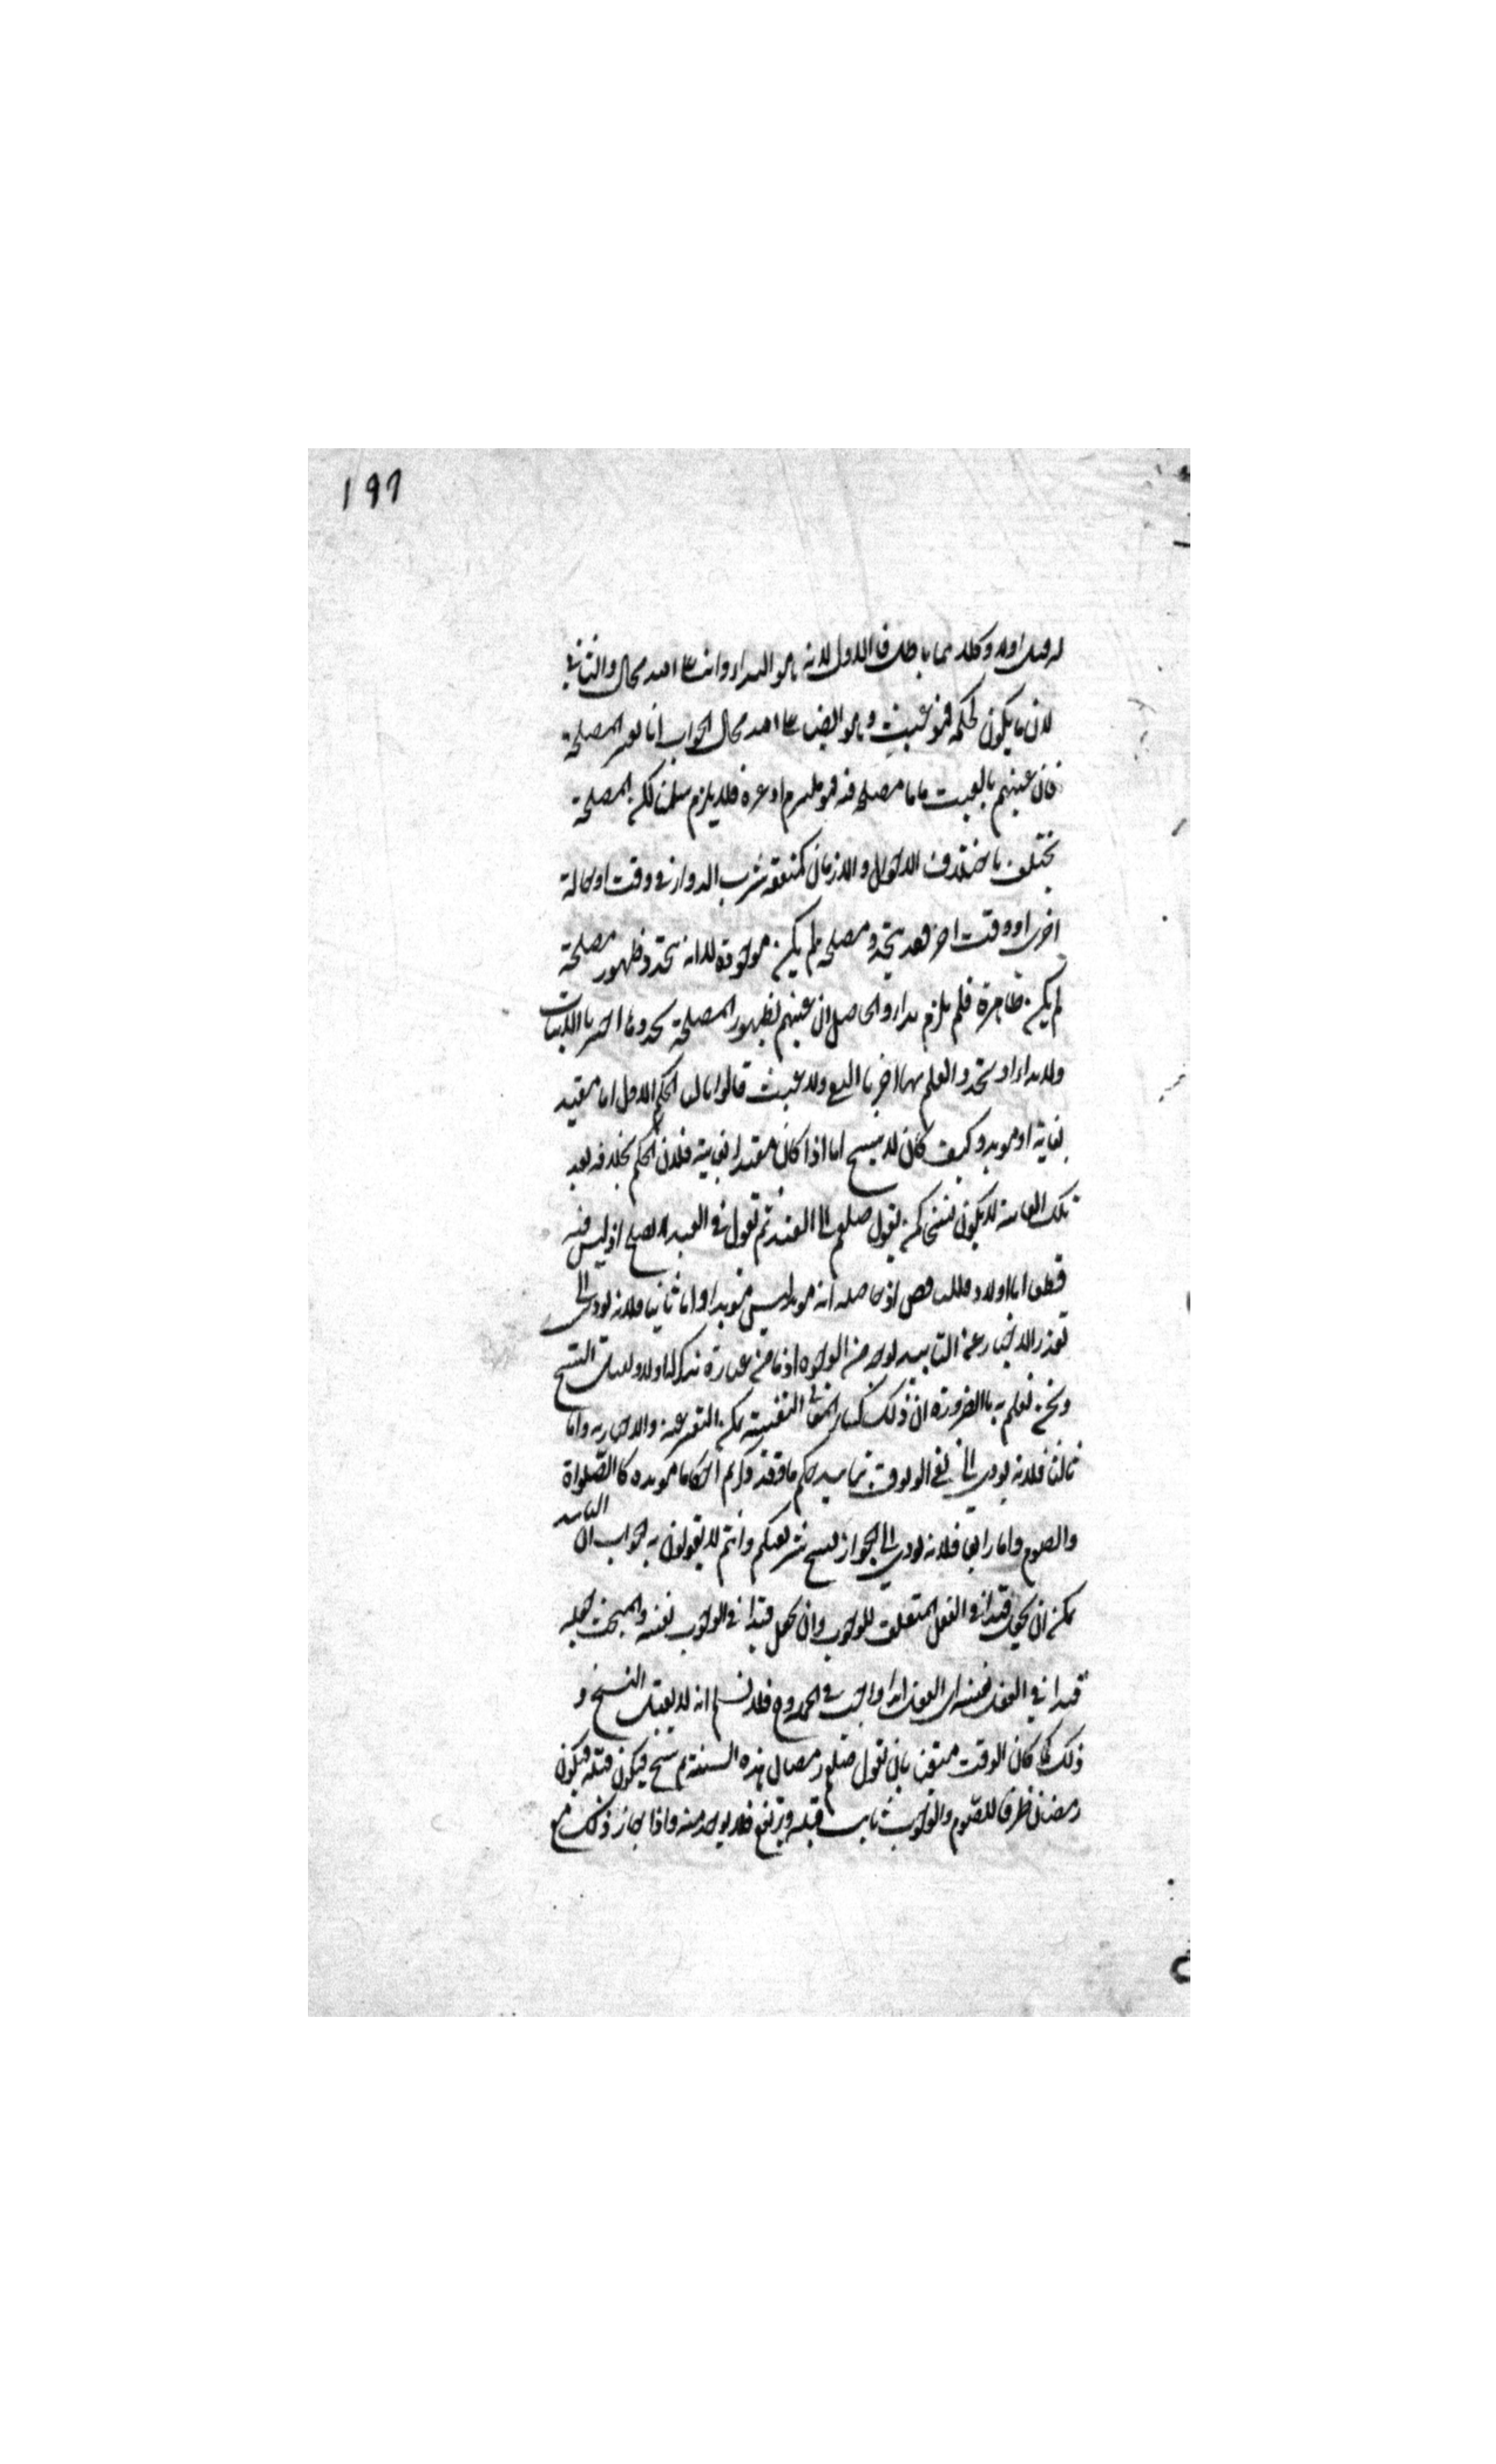 ١٩٦
اولا وكلاهما باطل فالاول لانه هو البداء وانه على الله محال والثاني
لان ما يكون لحكمة فهو عبث وهو ايضا على الله محال الجواب انا نعتبر المصلحة
فان عنيتم بالعبث ما لا مصلحة فيه فهو ملتزم او غيره فلا يلزم سلمنا لكن المصلحة
تختلف باختلاف الاحوال والازمان كمنفعة شرب الدواء في وقت او حالة
اخرى او وقت اخر فقد يتجدد مصلحة لم يكن موجودة لا انه يتجدد ظهور مصلحة
لم يكن ظاهرة فلم يلزم بداء والحاصل ان عنيتم بظهور المصلحة تجددها اخترنا الاثبات
ولا بداء او تجدد العلم بها اخترنا النفي ولا عبث قالوا ثالثا الحكم الاول اما مقيد
بغاية او مؤبد وكيف كان لا نسخ اما اذا كان مقيدا بغاية فلان الحكم بخلافه بعد
تلك الغاية لا يكون نسخا كمن يقول صلوا الى الغد ثم تقول في الغد لا تصلوا اذ ليس فيه
قطعا اما اولا فللتناقض اذ حاصله انه مؤبد ليس مؤبدا واما ثانيا فلانه يؤدي الى
تعذر الاخبار عن التأبيد بوجه من الوجوه اذ ما من عبارة تذكر لها ولا وتقبل النسخ
ونحن نعلم بالضرورة ان ذلك كسائر المعاني النفسية يمكن التعبير عنه والاخبار به واما
ثالثا فلانه يؤدي الى نفي الوثوق بتأبيد حكم ما وقد ذكرتم احكاما مؤبدة كالصلواة
والصوم واما رابعا فلانه يؤدي الى الجواز نسخ شريعتكم وانتم لا تقولون به الجواب ان التأبيد
يمكن ان يجعل قيدا في الفعل المتعلق للوجوب وان يجعل قيدا في الوجوب نفسه والمبحث جعله
قيدا في الفعل نفسه اي الفعل ابدا واجب في الجملة فلا نسلم انه لا يقبل النسخ و
ذلك كما كان الوقت معين بان تقول صم رمضان هذه السنة ثم نسخ فيكون قبله فيكون
رمضان ظرفا للصوم والوجوب ثابت قبله ويرتفع فلا يوجد منه واذا جاز ذلك مع